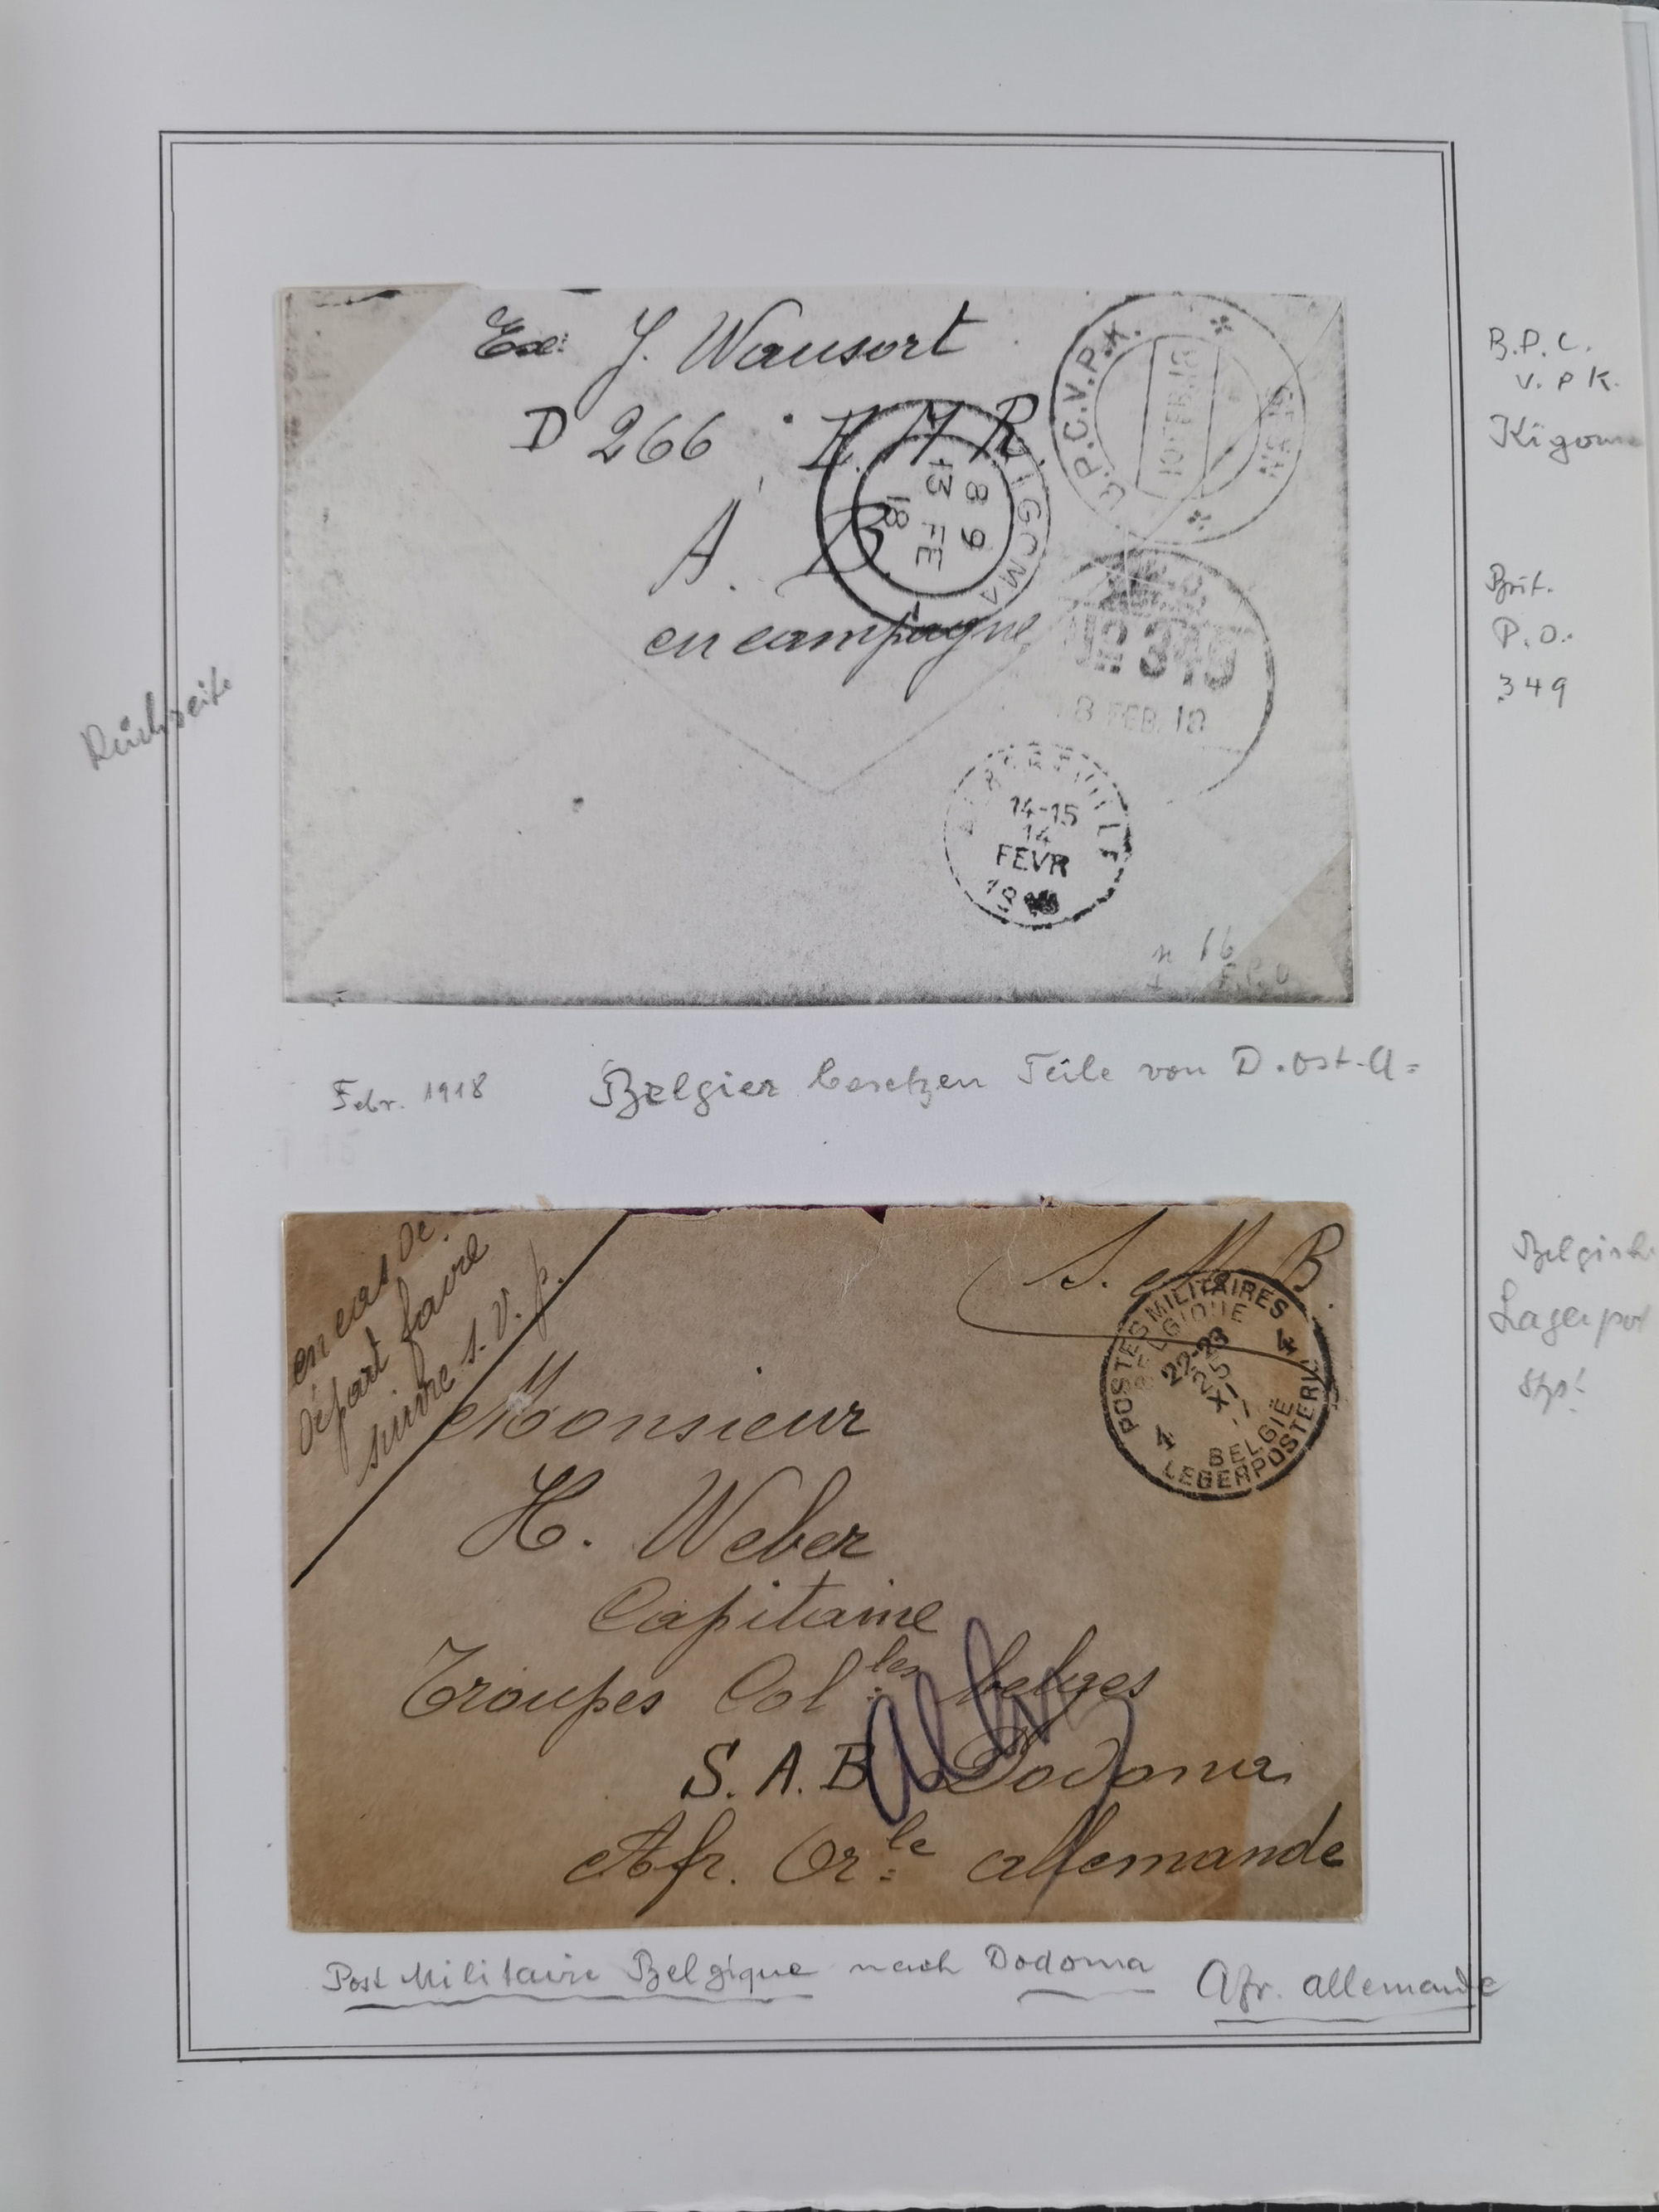 Ex: J. Wausort
D 266 E. M R.
A. B.
en campagne
B.P.C.V.P.K.
10 FEB. 18
No
KIGOMA
8 9
13 FE
18
No 349
8 FEB. 18
ALBERTVILLE
14-15
14
FEVR
n 16
F.P.O
B.P.C.
V. P K.
Kigoma
Brit.
P.O.
349
Rückseite
Febr. 1918 Belgier besetzen Teile von D.Ost-A=
en cas de
départ faire
suivre s.V.p.
S. M. B.
POSTES MILITAIRES 4
BELGIQUE
22-23
25
XI
BELGIË
4 LEGERPOSTERIJ
Monsieur
H. Weber
Capitaine
Troupes Col.les belges
S.A.B Dodoma
Afr. Or.le allemande
Belgisch
Lagerpost
Stpl
Post Militaire Belgique nach Dodoma Afr. allemande